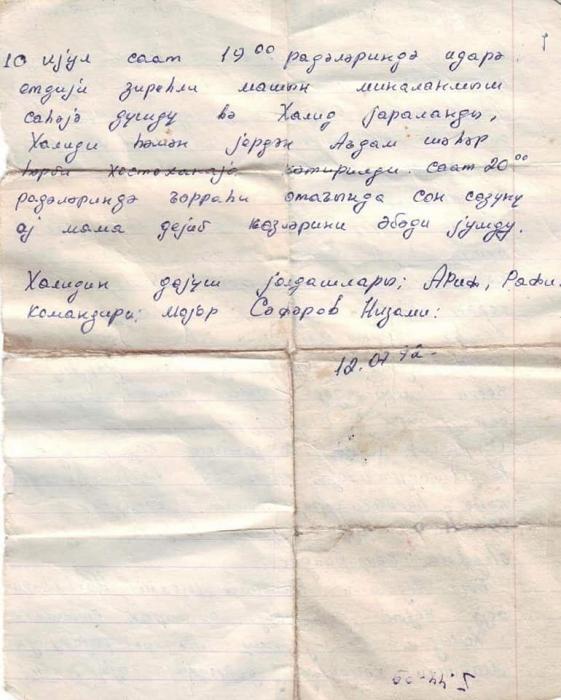 10 ијул саат 19⁰⁰ радәләриндә идарә
етдији зиреһли машын миналанмыш
саһәјә дүшдү вә Халид јараланды,
Халиди һәмән јердән Ағдам шәһәр
һәрби хәстәханаја кәтирилди. саат 20⁰⁰
радәләриндә ҹәрраһи отағында сон сөзүнү
ај мама дејиб көзләрини әбәди јумду.
Халидин дөјүш јолдашлары; Ариф, Рафи
командири: мајор Сәфәров Низами:
12.07